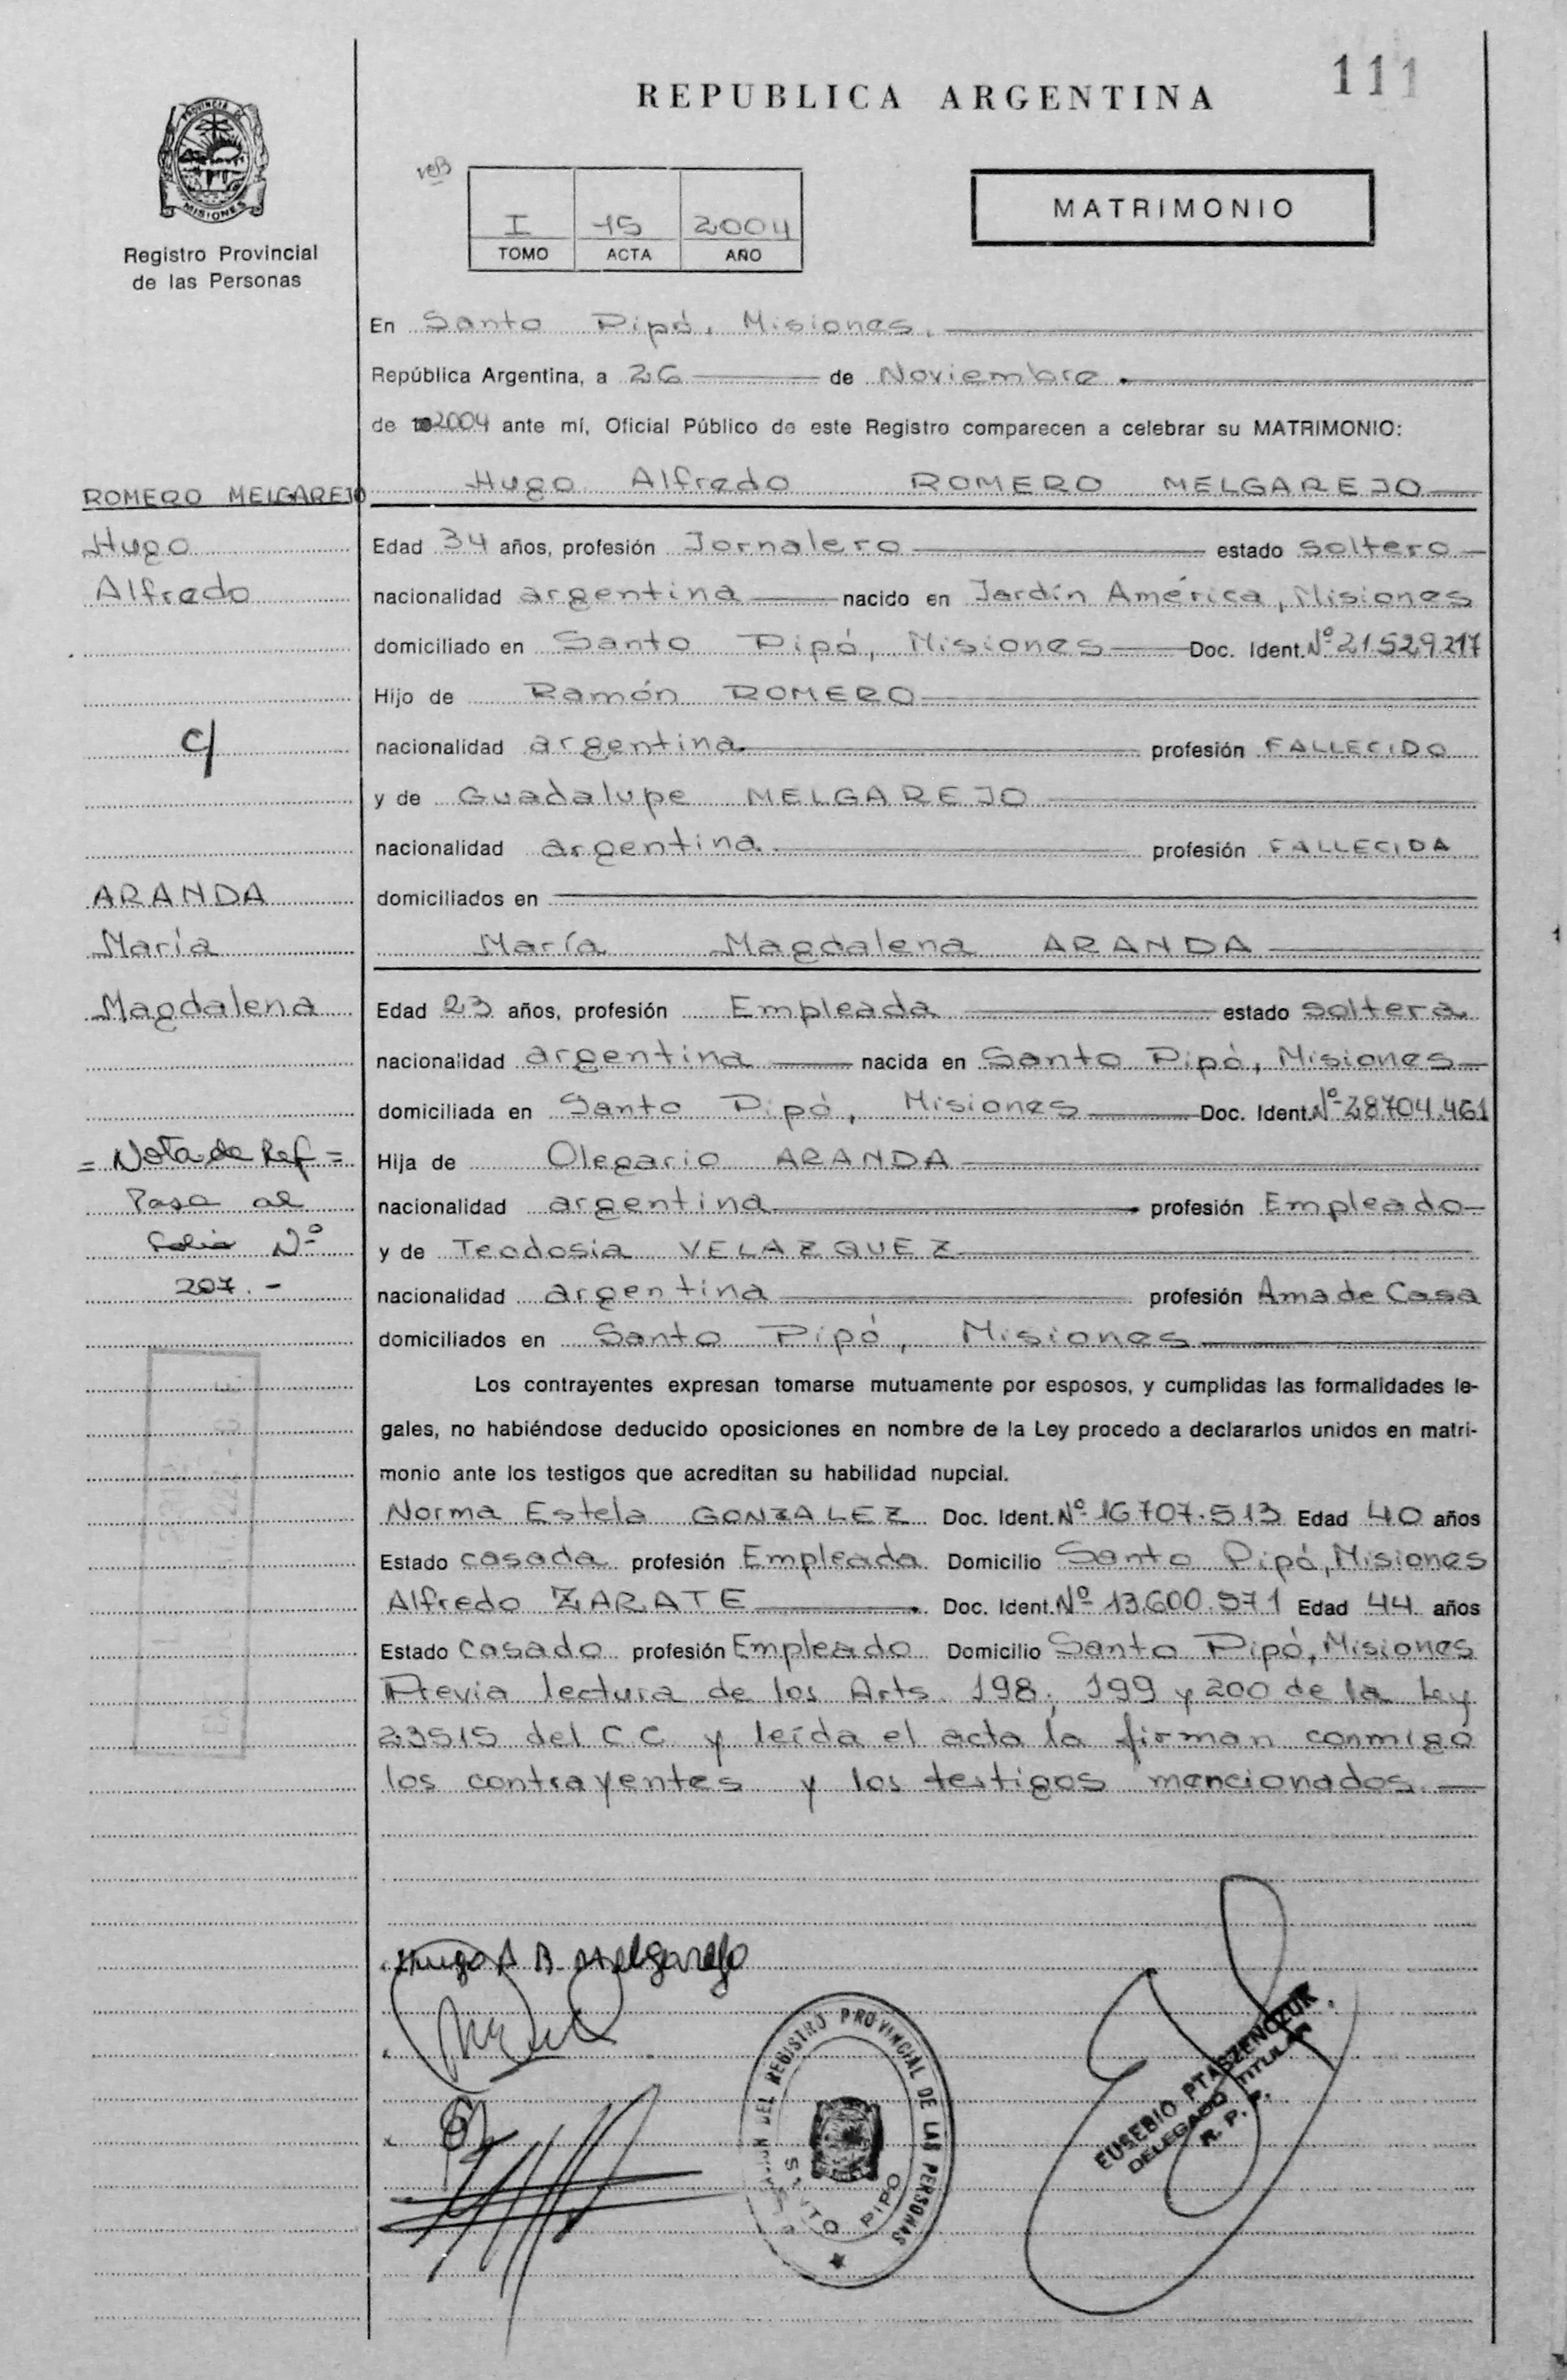 111
REPUBLICA ARGENTINA
PROVINCIA DE
MISIONES
Registro Provincial
de las Personas
MATRIMONIO
I 15 2004
TOMO ACTA AÑO
En Santo Pipó, Misiones.
República Argentina, a 26 de Noviembre
de 2004 ante mí, Oficial Público de este Registro comparecen a celebrar su MATRIMONIO:
Hugo Alfredo ROMERO MELGAREJO
Edad 34 años, profesión Jornalero estado soltero
nacionalidad argentina nacido en Jardín América, Misiones
domiciliado en Santo Pipó, Misiones Doc. Ident. Nº 21.529.217
Hijo de Ramón ROMERO
nacionalidad argentina profesión FALLECIDO
y de Guadalupe MELGAREJO
nacionalidad argentina profesión FALLECIDA
domiciliados en
María Magdalena ARANDA
Edad 23 años, profesión Empleada estado soltera
nacionalidad argentina nacida en Santo Pipó, Misiones
domiciliada en Santo Pipó, Misiones Doc. Ident. Nº 28704.461
Hija de Olegario ARANDA
nacionalidad argentina profesión Empleado
y de Teodosia VELAZQUEZ
nacionalidad argentina profesión Ama de Casa
domiciliados en Santo Pipó, Misiones
Los contrayentes expresan tomarse mutuamente por esposos, y cumplidas las formalidades le-
gales, no habiéndose deducido oposiciones en nombre de la Ley procedo a declararlos unidos en matri-
monio ante los testigos que acreditan su habilidad nupcial.
Norma Estela GONZALEZ Doc. Ident. Nº 16707.513 Edad 40 años
Estado casada profesión Empleada Domicilio Santo Pipó, Misiones
Alfredo ZARATE Doc. Ident. Nº 13.600.971 Edad 44 años
Estado casado profesión Empleado Domicilio Santo Pipó, Misiones
Previa lectura de los Arts. 198, 199 y 200 de la Ley
23515 del C C y leída el acta la firman conmigo
los contrayentes y los testigos mencionados.
ROMERO MELGAREJO
Hugo
Alfredo
c/
ARANDA
María
Magdalena
= Nota de Ref =
Pasa al
folio Nº
207.-
Melgarejo
DEL REGISTRO PROVINCIAL DE LAS PERSONAS
SANTO PIPO
EUSEBIO PTASZENCZUK
DELEGADO TITULAR
R. P. P.